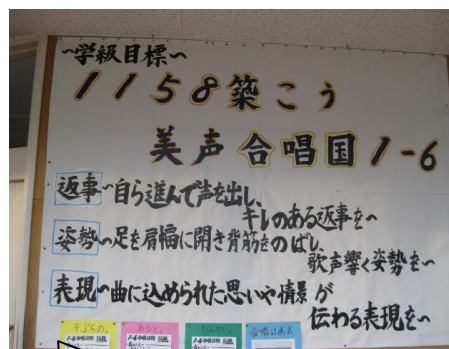 ~学級目標~
1158築こう
美声合唱国1-6
返事~自ら進んで声を出し、
キレのある返事を~
姿勢~足を肩幅に開き背筋をのばし、
歌声響く姿勢を~
表現~曲に込められた思いや情景が
伝わる表現を~
そぷらの。
あると。
だんせい。